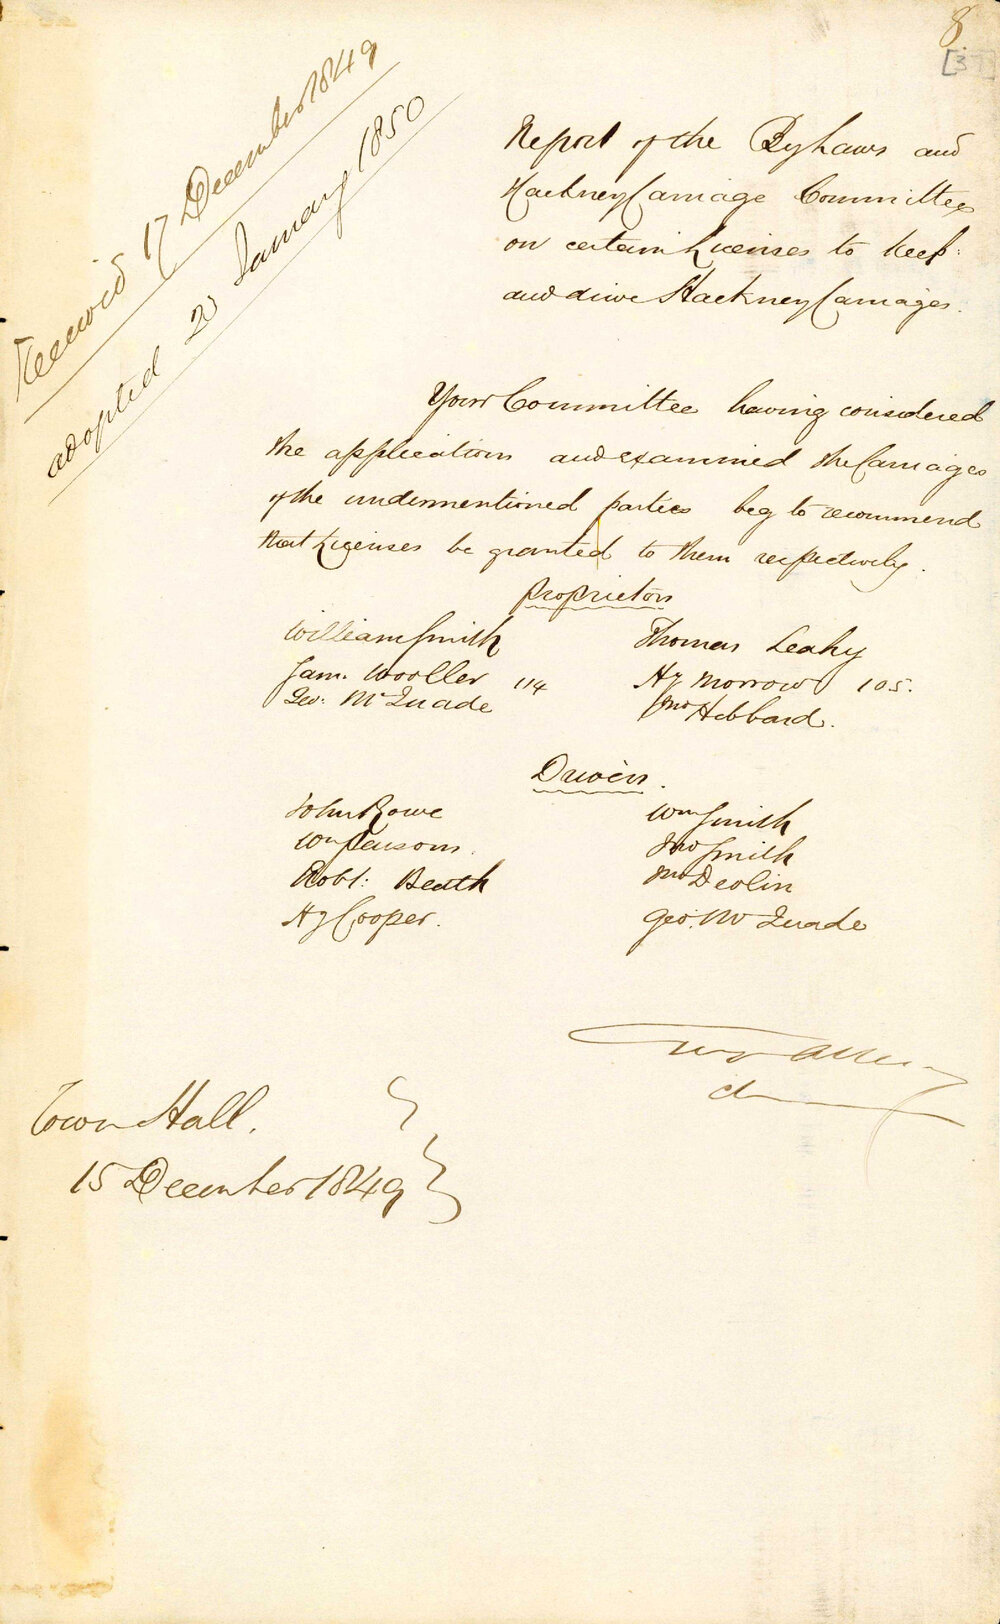 8
[37]
Received 17 December 1849
adopted 23 January 1850
Report of the ByLaws and
Hackney Carriage Committee
on certain Licenses to keep
and drive Hackney Carriages.
Your Committee having considered
the applications and examined the Carriages
of the undermentioned parties beg to recommend
that Licenses be granted to them respectively.
Proprietors
William Smith Thomas Leahy
Jam. Wooller 114 Hy Morrow 105.
Geo: McQuade Jno Hebbard.
Drivers.
John Rowe Wm Smith
Wm Parsons. Jno Smith
Robt: Beath Jno Devlin
Hy Cooper. Geo. McQuade
Town Hall.
15 December 1849